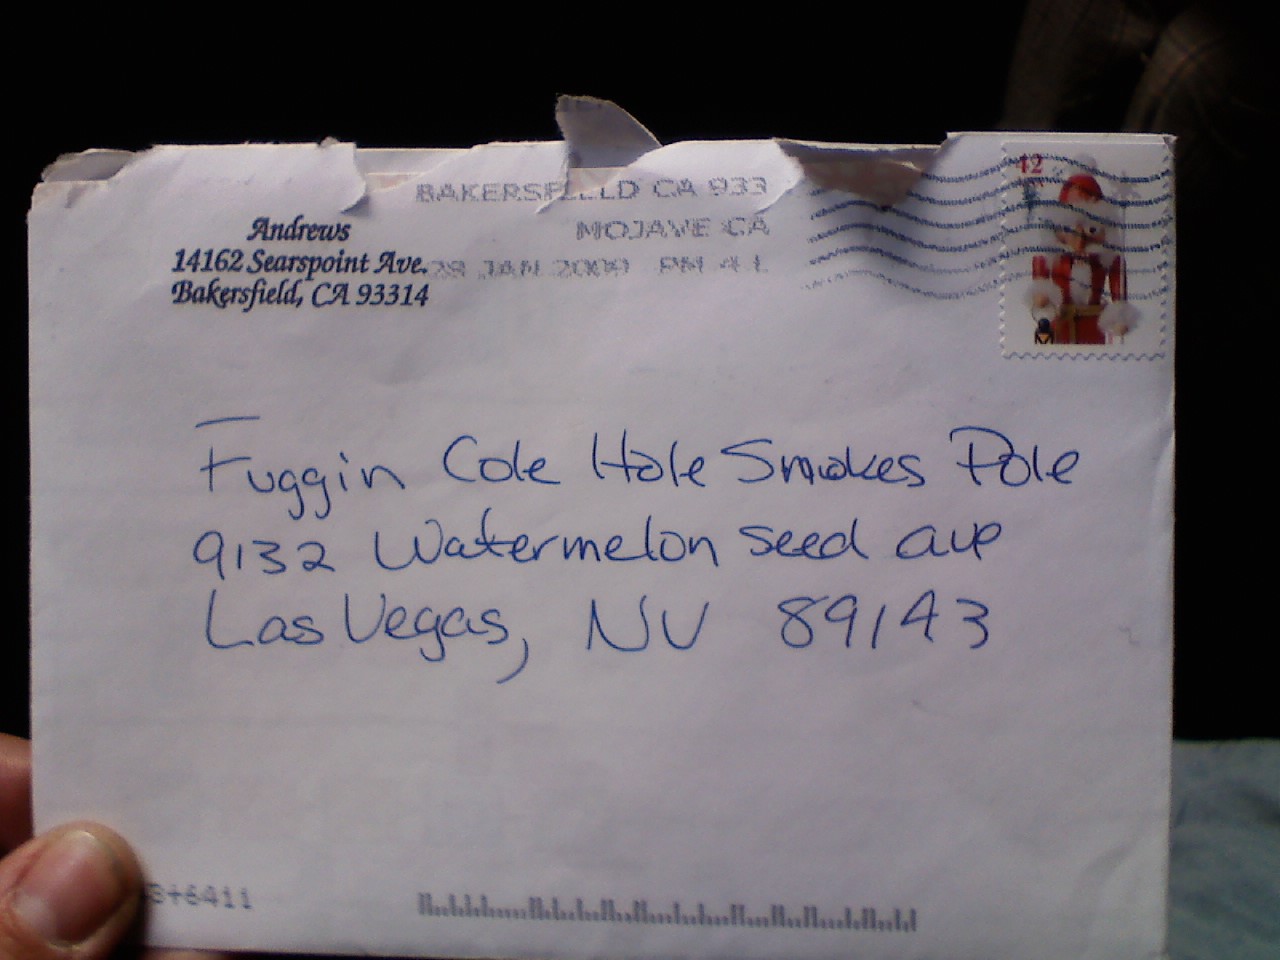 42
BAKERSFIELD CA 933
MOJAVE CA
28 JAN 2009 PM 4 L
Andrews
14162 Searspoint Ave.
Bakersfield, CA 93314
Fuggin Cole Hole Smokes Pole
9132 Watermelon seed ave
Las Vegas, NV 89143
3+6411